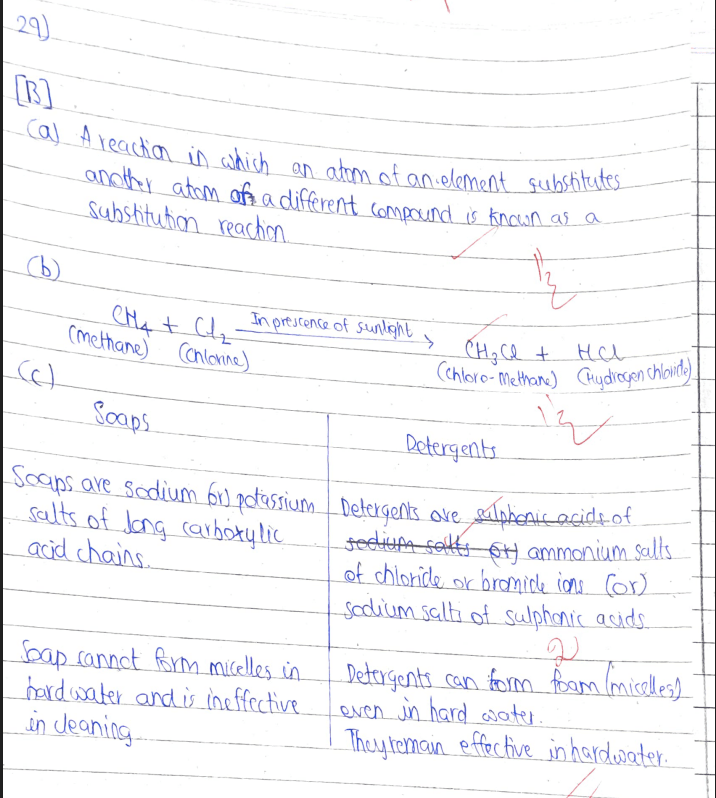 29)
[B]
(a) A reaction in which an atom of an element substitutes
another atom of a different compound is known as a
substitution reaction
1½
(b)
CH4 + Cl2 In prescence of sunlight → CH3Cl + HCl
(Methane) (Chlorine) (Chloro-Methane) (Hydrogen chloride)
1½
(c)
Soaps
Soaps are sodium (or) potassium
salts of long carboxylic
acid chains.
Soap cannot form micelles in
hard water and is ineffective
in cleaning.
Detergents
Detergents are sulphonic acids of
sodium salts (or) ammonium salts
of chloride or bromide ions (or)
sodium salts of sulphonic acids.
2
Detergents can form foam (micelles)
even in hard water.
They remain effective in hard water.